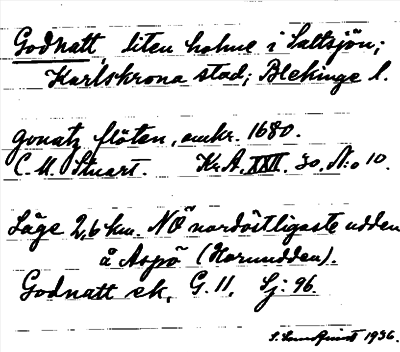 Godnatt, liten holme i Saltsjön;
Karlskrona stad; Blekinge l.
gonatz flöten, omkr. 1680.
C. M. Stuart. Kr.A. XXII. 30. N:o 10.
Läge 2,6 km. NÖ nordöstligaste udden
å Aspö (Horudden).
Godnatt ek. G. 11. Sj: 96.
S. Landquist 1936.